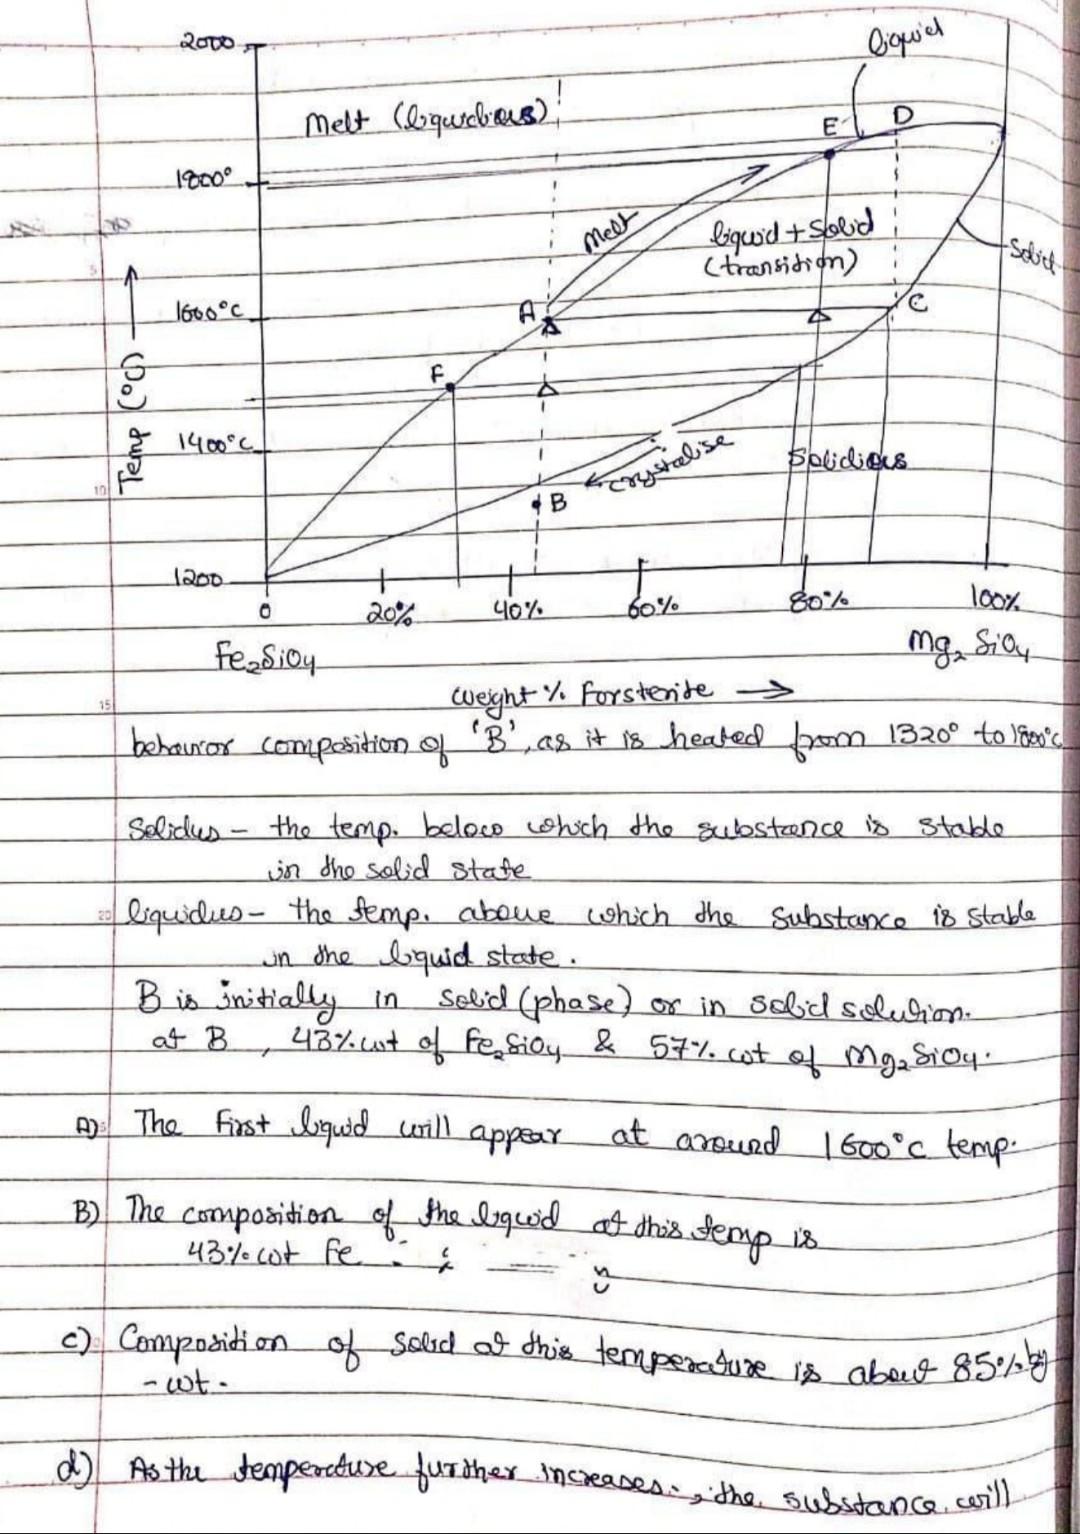 2000
liquid
Melt (liquidious)
E
D
1800°
Melt
liquid + Solid
(transition)
Solid
1600°C
A
C
F
Temp (°C)
1400°C
crystalise
Solidious
B
1200
0
20%
40%
60%
80%
100%
Fe₂SiO₄
Mg₂ SiO₄
weight % Forsterite →
behaviour composition of 'B', as it is heated from 1320° to 1800°C
Solidus – the temp. below which the substance is stable
in the solid state
liquidus – the temp. above which the substance is stable
in the liquid state.
B is initially in solid (phase) or in solid solution.
at B , 43% wt of Fe₂SiO₄ & 57% wt of Mg₂SiO₄.
A) The First liquid will appear at around 1600°C temp.
B) The composition of the liquid at this temp is
43% wt Fe
c) Composition of solid at this temperature is about 85% by
- wt -
d) As the temperature further increases, the substance will